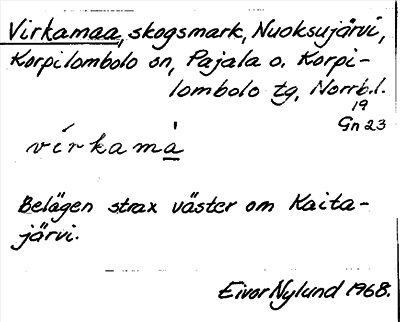 Virkamaa, skogsmark, Nuoksujärvi,
Korpilombolo sn, Pajala o. Korpi-
lombolo tg, Norrb.l.
19
Gn 23
vírkamà
Belägen strax väster om Kaita-
järvi.
Eivor Nylund 1968.